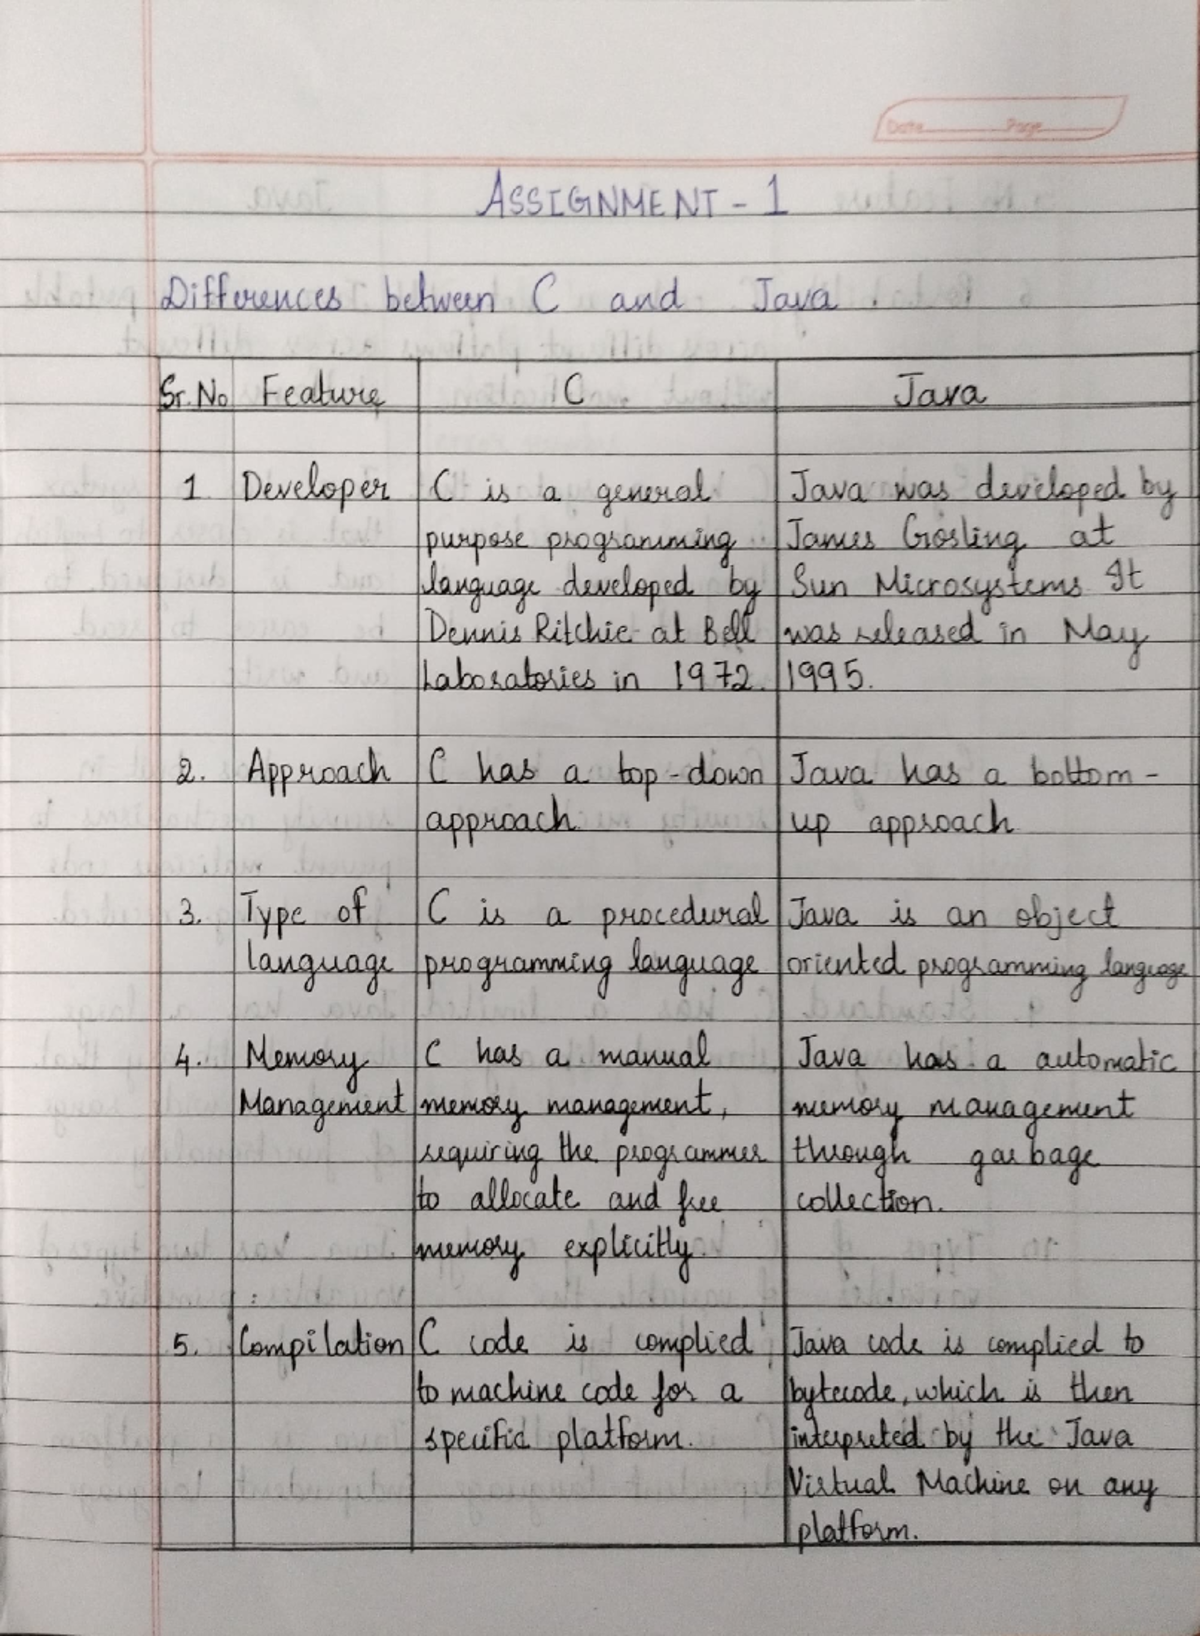 Date Page
ASSIGNMENT - 1
Differences between C and Java.
Sr. No Feature C Java
1. Developer C is a general Java was developed by
purpose programming James Gosling at
language developed by Sun Microsystems It
Dennis Ritchie at Bell was released in May
Laboratories in 1972. 1995.
2. Approach C has a top-down Java has a bottom-
approach. up approach
3. Type of C is a procedural Java is an object
language programming language oriented programming language
4. Memory C has a manual Java has a automatic
Management memory management, memory management
requiring the programmer through garbage
to allocate and free collection.
memory explicitly.
5. Compilation C code is complied Java code is complied to
to machine code for a bytecode, which is then
specific platform. interpreted by the Java
Virtual Machine on any
platform.